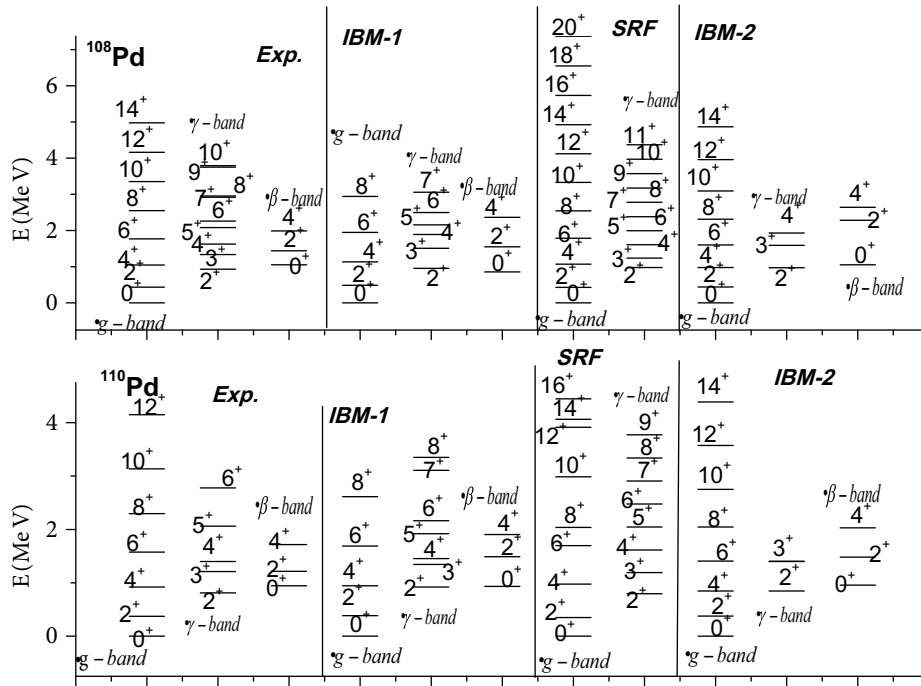 ¹⁰⁸Pd
Exp.
E(MeV)
6
4
2
0
14⁺
12⁺
10⁺
8⁺
6⁺
4⁺
2⁺
0⁺
•g-band
•γ-band
10⁺
9⁺
8⁺
7⁺
6⁺
5⁺
4⁺
3⁺
2⁺
•β-band
4⁺
2⁺
0⁺
IBM-1
•g-band
8⁺
6⁺
4⁺
2⁺
0⁺
•γ-band
7⁺
6⁺
5⁺
4⁺
3⁺
2⁺
•β-band
4⁺
2⁺
0⁺
SRF
20⁺
18⁺
16⁺
14⁺
12⁺
10⁺
8⁺
6⁺
4⁺
2⁺
0⁺
•g-band
•γ-band
11⁺
10⁺
9⁺
8⁺
7⁺
6⁺
5⁺
4⁺
3⁺
2⁺
IBM-2
14⁺
12⁺
10⁺
8⁺
6⁺
4⁺
2⁺
0⁺
•g-band
•γ-band
4⁺
3⁺
2⁺
4⁺
2⁺
0⁺
•β-band
¹¹⁰Pd
Exp.
E(MeV)
4
2
0
12⁺
10⁺
8⁺
6⁺
4⁺
2⁺
0⁺
•g-band
6⁺
5⁺
4⁺
3⁺
2⁺
•γ-band
•β-band
4⁺
2⁺
0⁺
IBM-1
8⁺
6⁺
4⁺
2⁺
0⁺
•g-band
8⁺
7⁺
6⁺
5⁺
4⁺
3⁺
2⁺
•γ-band
•β-band
4⁺
2⁺
0⁺
SRF
16⁺
14⁺
12⁺
10⁺
8⁺
6⁺
4⁺
2⁺
0⁺
•g-band
•γ-band
9⁺
8⁺
7⁺
6⁺
5⁺
4⁺
3⁺
2⁺
IBM-2
14⁺
12⁺
10⁺
8⁺
6⁺
4⁺
2⁺
0⁺
•g-band
3⁺
2⁺
•γ-band
•β-band
4⁺
2⁺
0⁺